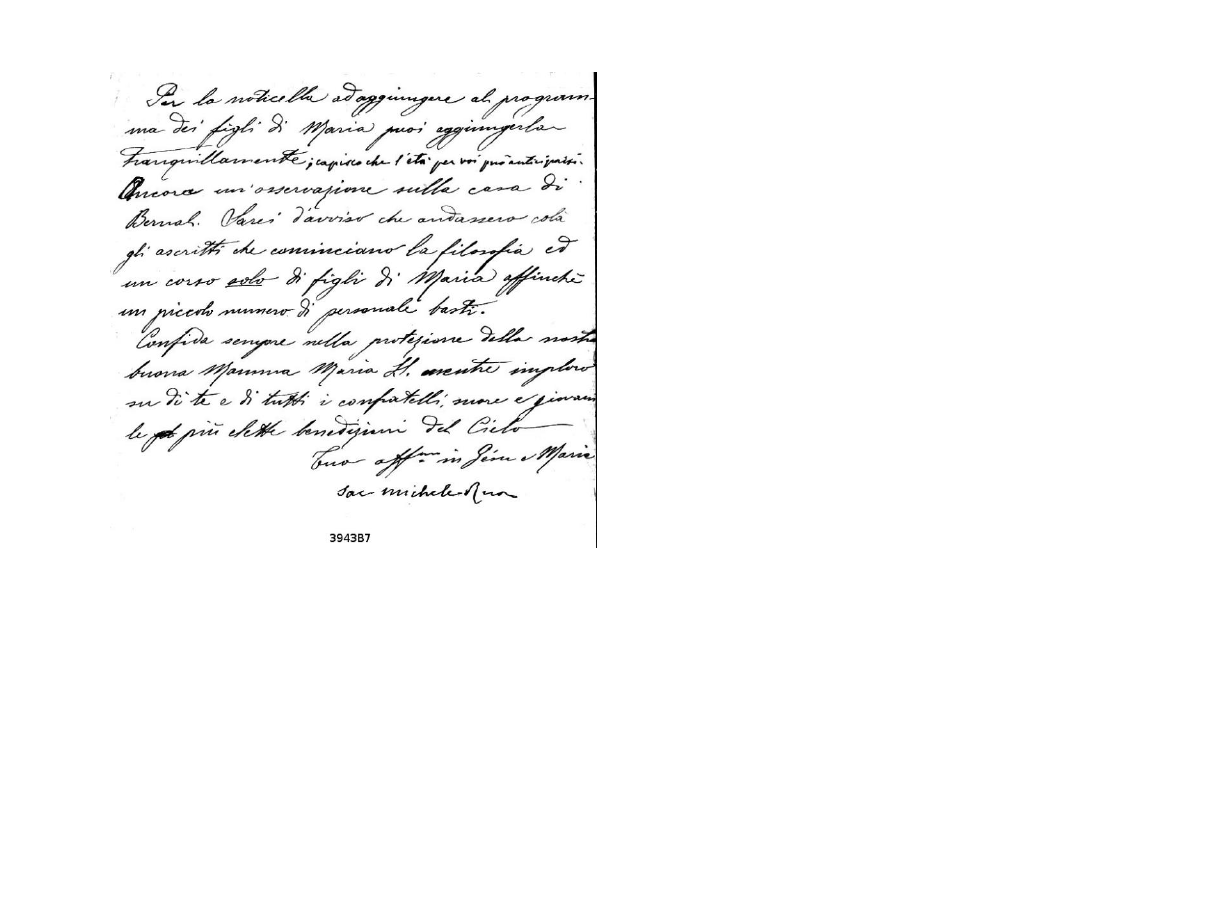 Per la noticella ad aggiungere al program-
ma dei figli di Maria puoi aggiungerla
tranquillamente; capisco che l'età per voi può anticiparsi.
Ancora un'osservazione sulla casa di
Bernal. Sarei d'avviso che andassero colà
gli ascritti che cominciano la filosofia ed
un corso solo di figli di Maria affinchè
un piccolo numero di personale basti.
Confida sempre nella protezione della nostra
buona Mamma Maria SS. mentre imploro
su di te e di tutti i confratelli, suore e giovani
le più elette benedizioni del Cielo
Tuo aff.mo in Gesù e Maria
Sac Michele Rua
3943B7